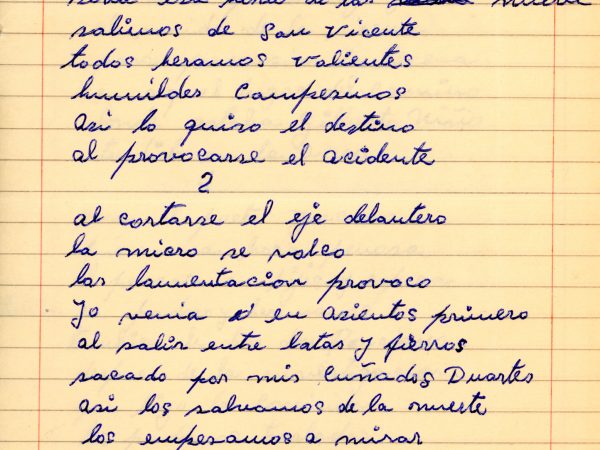 de las muerte
salimos de San Vicente
todos heramos valientes
humildes Campesinos
asi lo quiso el destino
al provocarse el acidente
2
al cortarse el eje delantero
la micro se volco
las lamentacion provoco
yo venia en asientos primero
al salir entre latas y fierros
sacado por mis Cuñados Duartes
asi los salvamos de la muerte
los empesamos a mirar